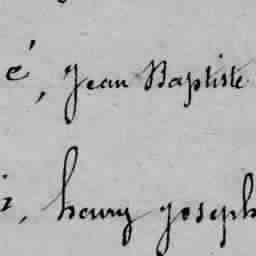 é, Jean Baptiste
, henry joseph